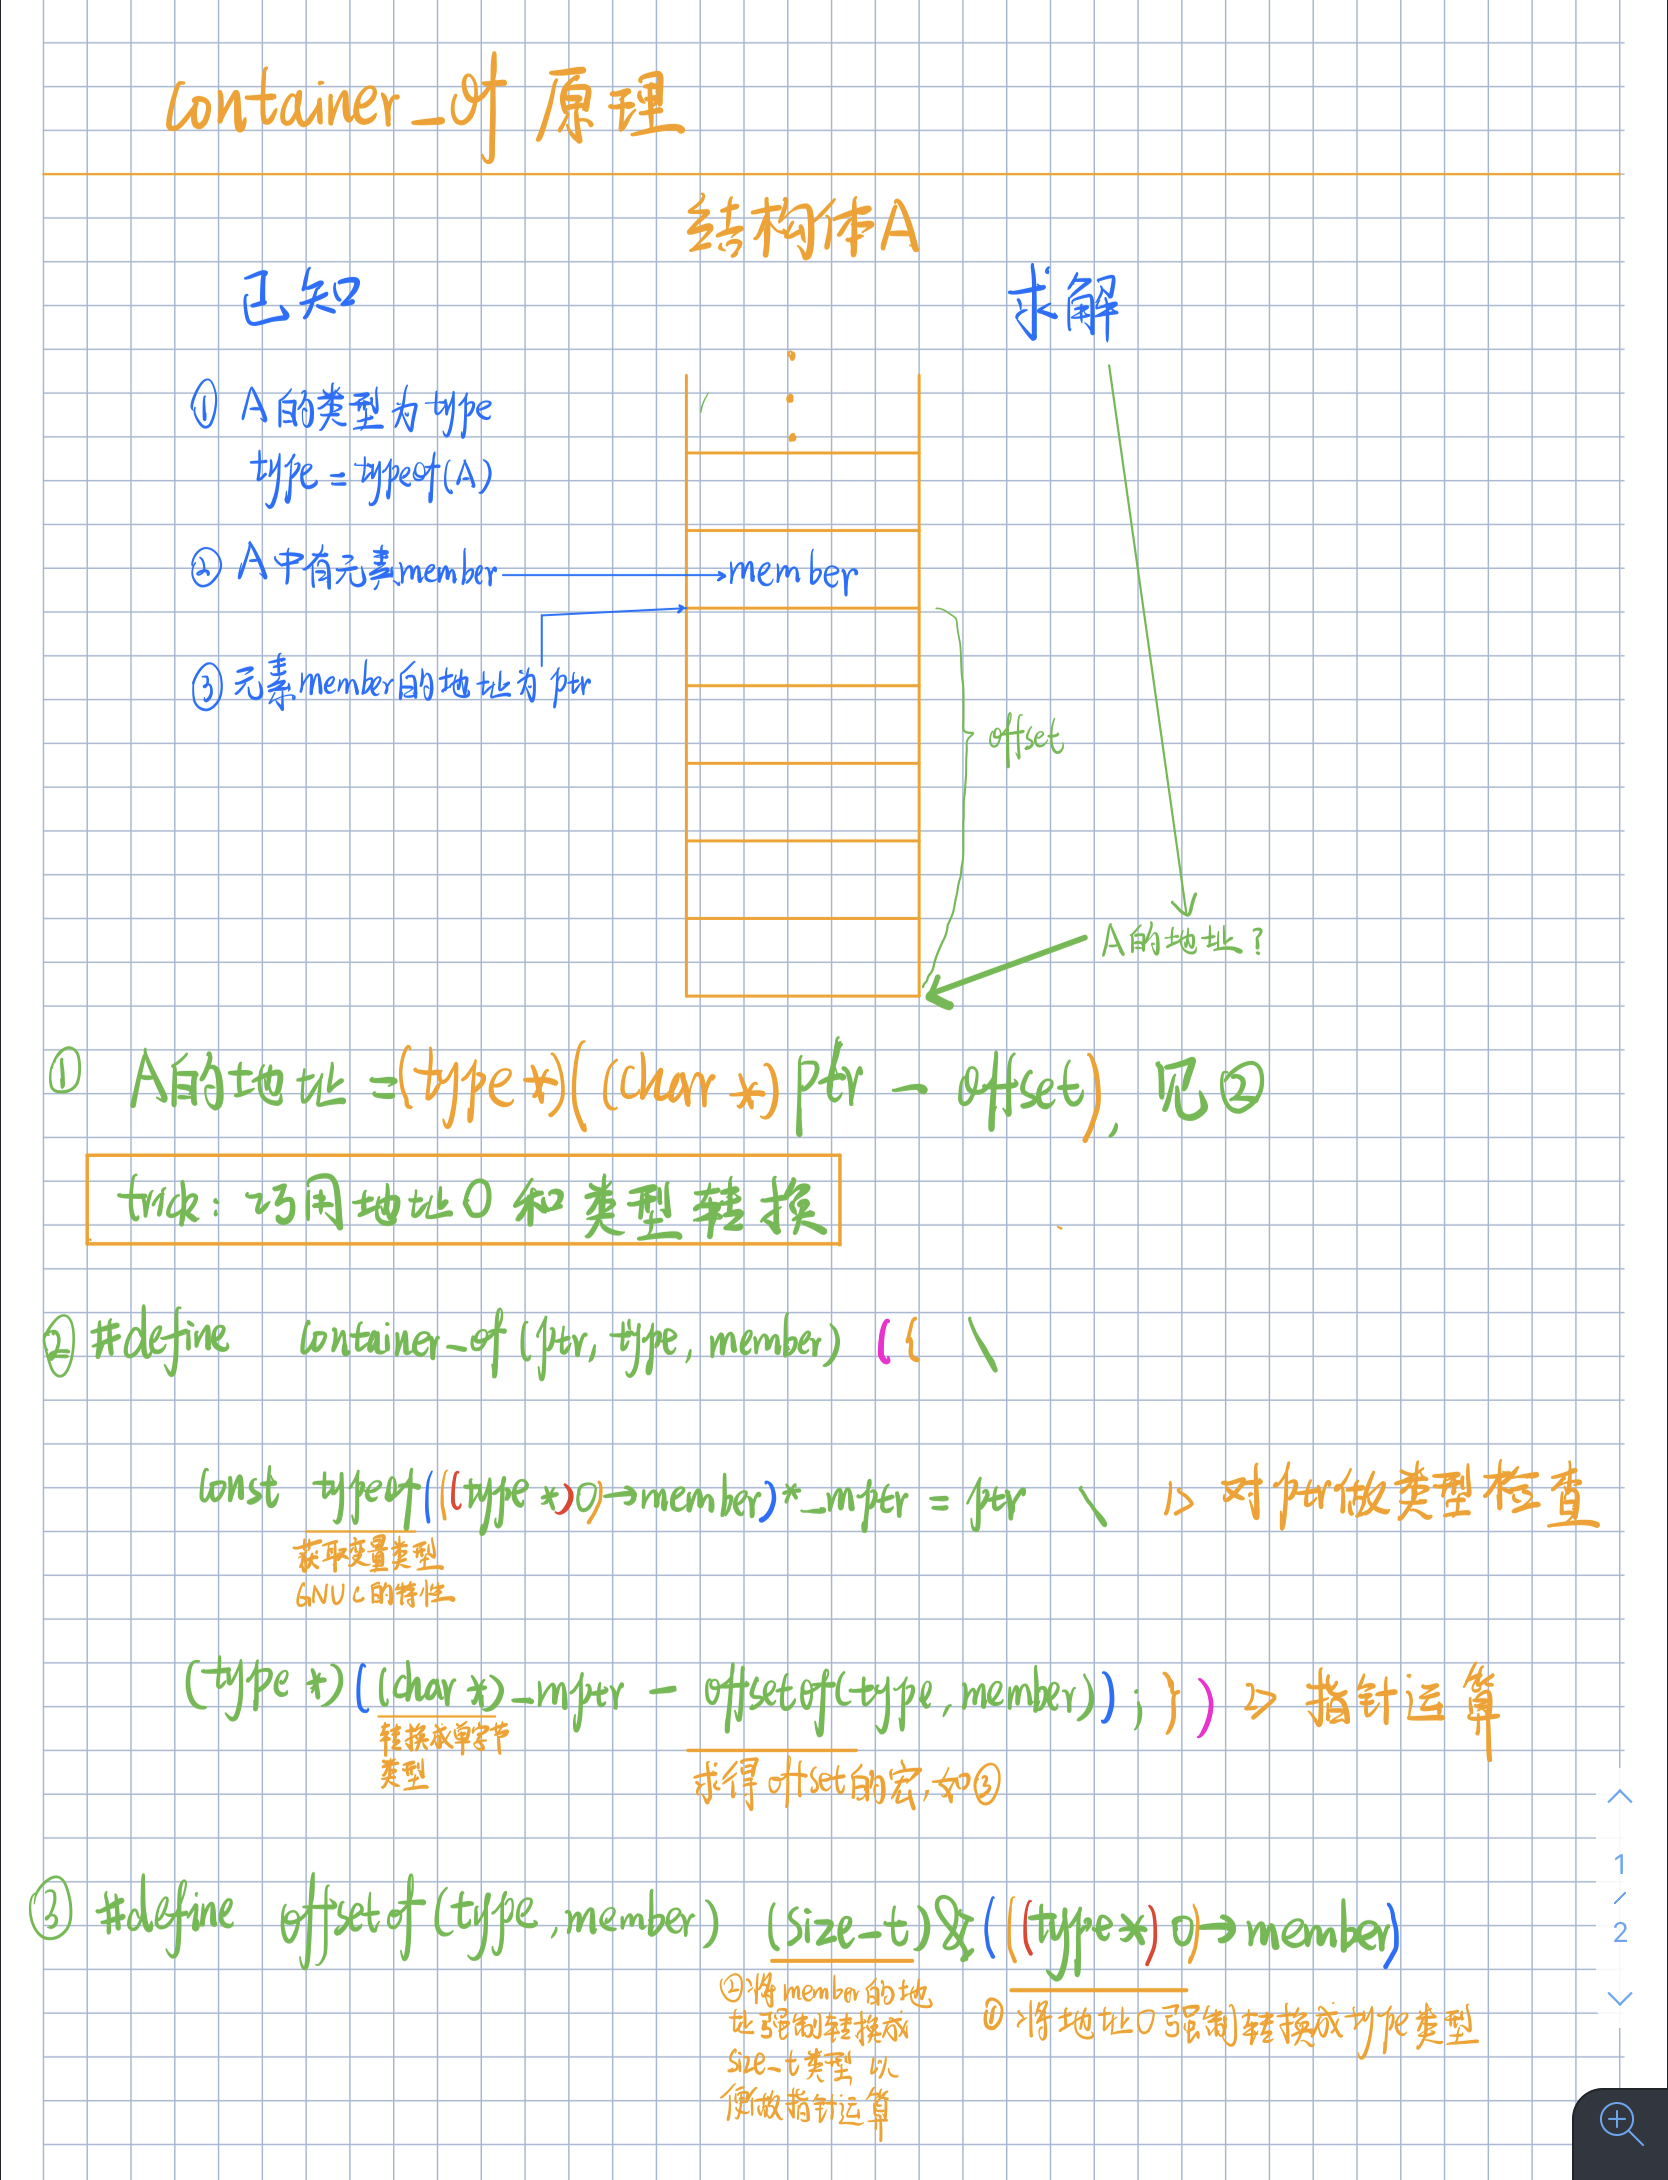 container_of 原理
结构体A
已知
求解
① A的类型为type
type = typeof(A)
② A中有元素member
member
③ 元素member的地址为ptr
offset
A的地址?
① A的地址 =(type *)((char *) ptr - offset), 见②
trick: 巧用地址0和类型转换
② #define container_of (ptr, type, member) ({ \
const typeof(((type *)0)→member)*_mptr = ptr \ 1> 对ptr做类型检查
获取变量类型
GNU C的特性
(type *)((char *)_mptr - offsetof(type, member)); }) 2> 指针运算
转换成单字节
类型
求得offset的宏,如③
③ #define offsetof(type, member) (size_t)&(((type*)0)→member)
②将member的地
址强制转换成
size_t类型 以
便做指针运算
① 将地址0强制转换成type类型
1
/
2